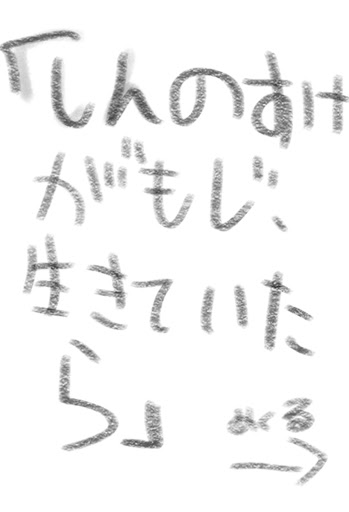 「しんのすけ
がもじ、
生きていた
ら」
めくる
→